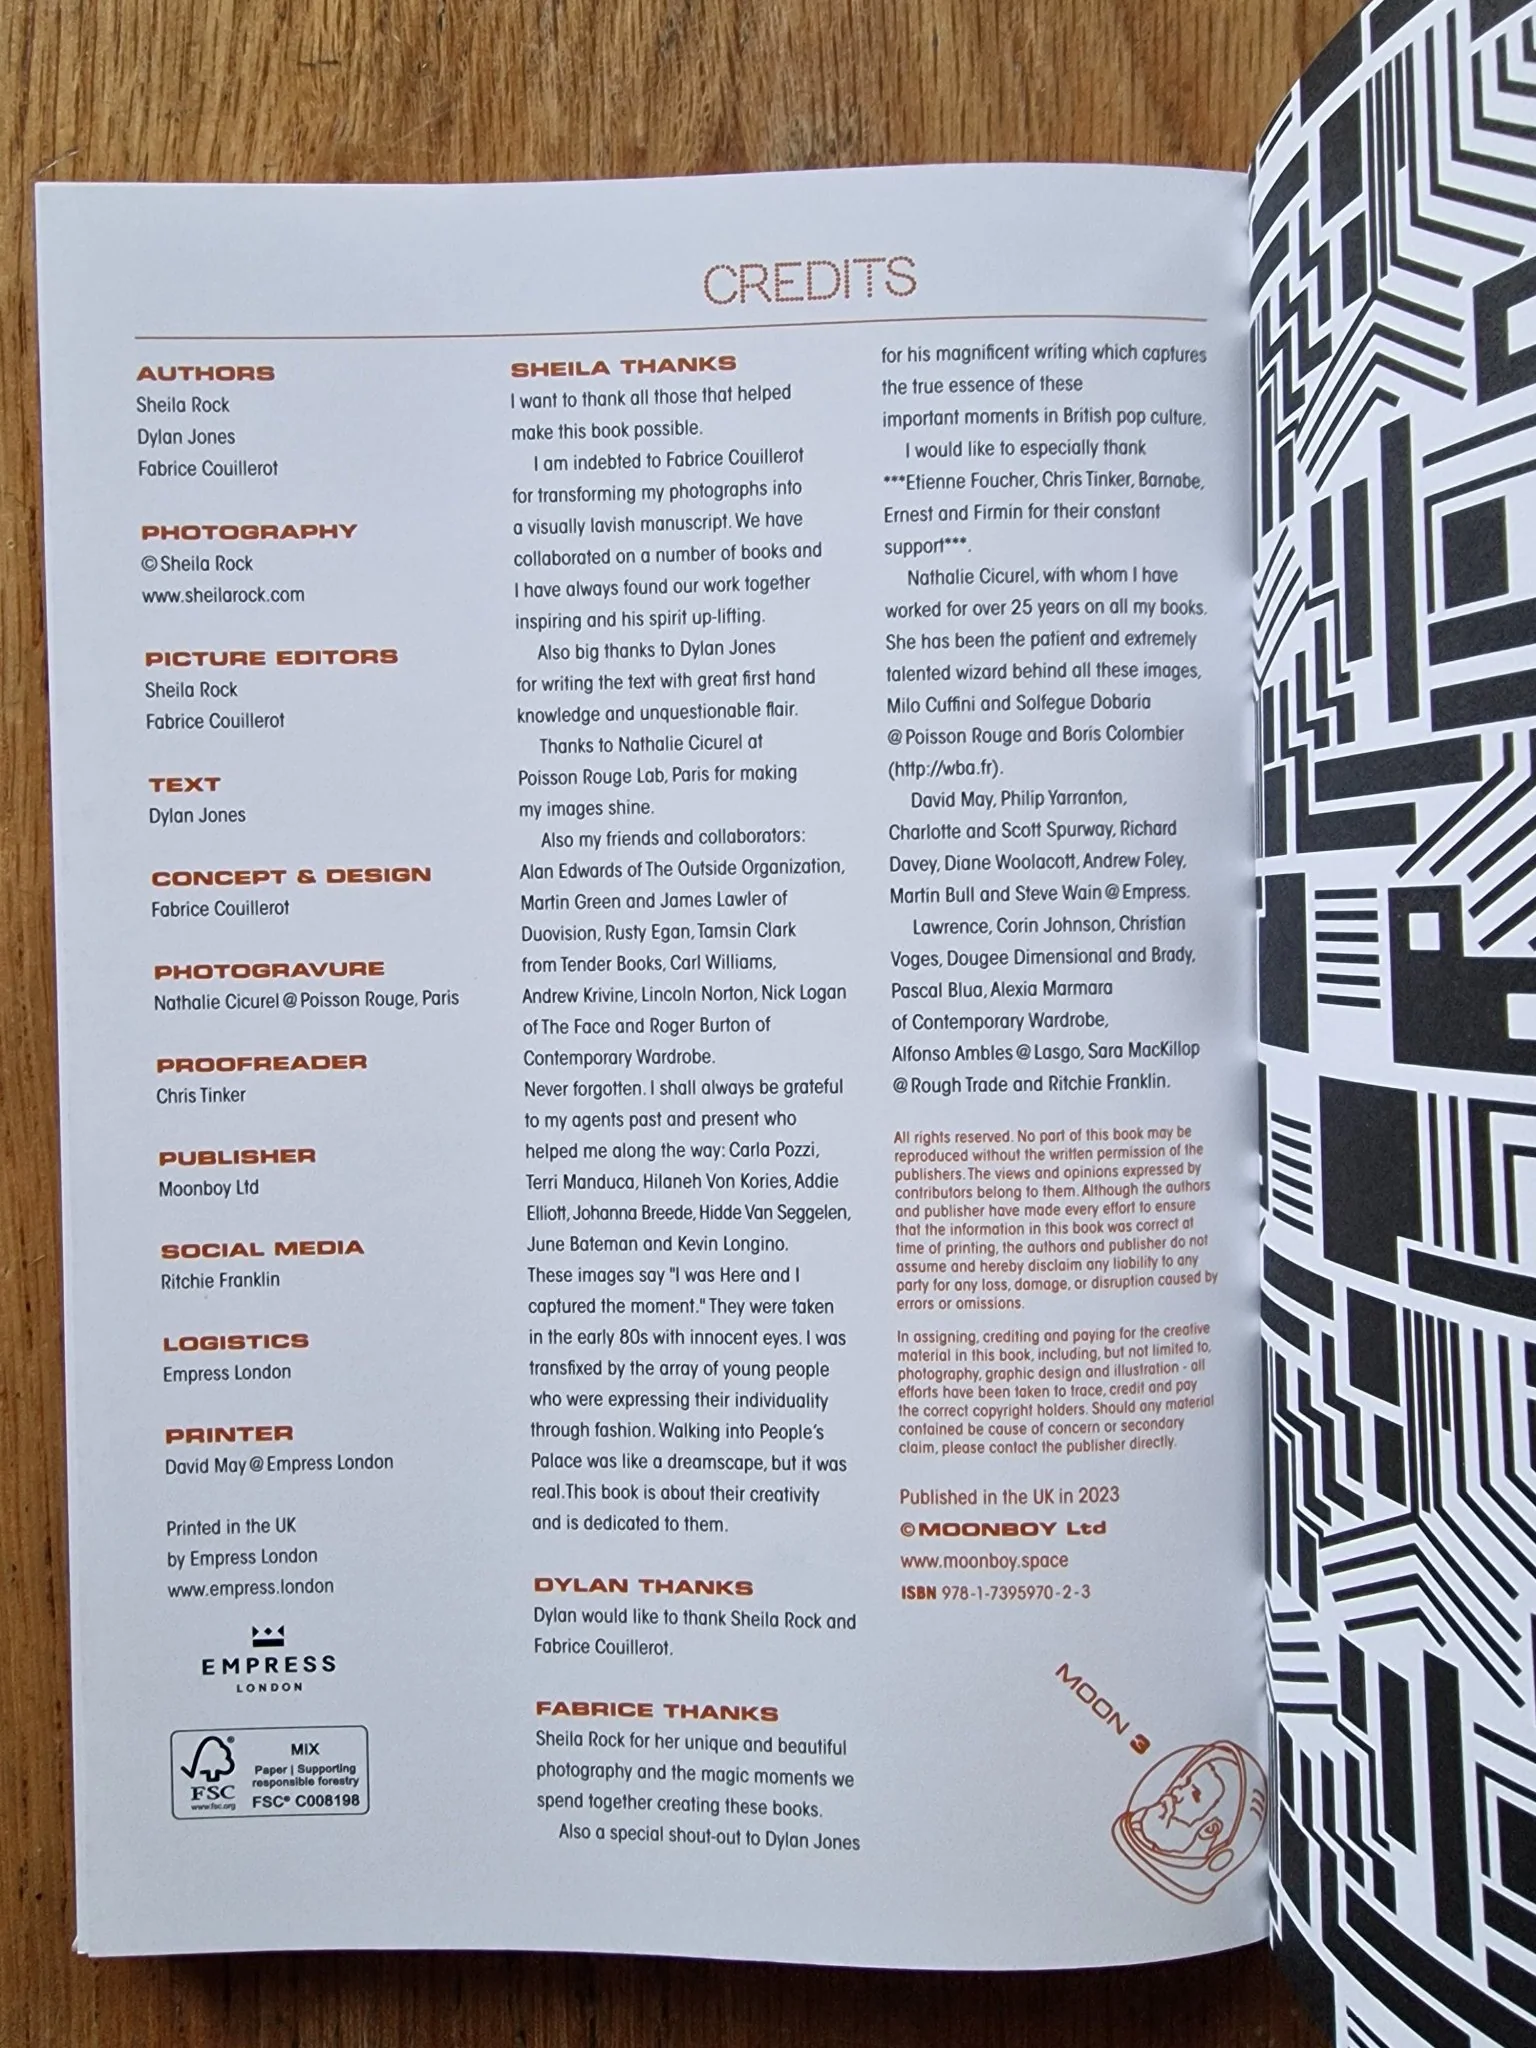 CREDITS
AUTHORS
Sheila Rock
Dylan Jones
Fabrice Couillerot
PHOTOGRAPHY
© Sheila Rock
www.sheilarock.com
PICTURE EDITORS
Sheila Rock
Fabrice Couillerot
TEXT
Dylan Jones
CONCEPT & DESIGN
Fabrice Couillerot
PHOTOGRAVURE
Nathalie Cicurel @ Poisson Rouge, Paris
PROOFREADER
Chris Tinker
PUBLISHER
Moonboy Ltd
SOCIAL MEDIA
Ritchie Franklin
LOGISTICS
Empress London
PRINTER
David May @ Empress London
Printed in the UK
by Empress London
www.empress.london
EMPRESS
LONDON
FSC
www.fsc.org
MIX
Paper | Supporting
responsible forestry
FSC® C008198
SHEILA THANKS
I want to thank all those that helped
make this book possible.
I am indebted to Fabrice Couillerot
for transforming my photographs into
a visually lavish manuscript. We have
collaborated on a number of books and
I have always found our work together
inspiring and his spirit up-lifting.
Also big thanks to Dylan Jones
for writing the text with great first hand
knowledge and unquestionable flair.
Thanks to Nathalie Cicurel at
Poisson Rouge Lab, Paris for making
my images shine.
Also my friends and collaborators:
Alan Edwards of The Outside Organization,
Martin Green and James Lawler of
Duovision, Rusty Egan, Tamsin Clark
from Tender Books, Carl Williams,
Andrew Krivine, Lincoln Norton, Nick Logan
of The Face and Roger Burton of
Contemporary Wardrobe.
Never forgotten. I shall always be grateful
to my agents past and present who
helped me along the way: Carla Pozzi,
Terri Manduca, Hilaneh Von Kories, Addie
Elliott, Johanna Breede, Hidde Van Seggelen,
June Bateman and Kevin Longino.
These images say "I was Here and I
captured the moment." They were taken
in the early 80s with innocent eyes. I was
transfixed by the array of young people
who were expressing their individuality
through fashion. Walking into People's
Palace was like a dreamscape, but it was
real.This book is about their creativity
and is dedicated to them.
DYLAN THANKS
Dylan would like to thank Sheila Rock and
Fabrice Couillerot.
FABRICE THANKS
Sheila Rock for her unique and beautiful
photography and the magic moments we
spend together creating these books.
Also a special shout-out to Dylan Jones
for his magnificent writing which captures
the true essence of these
important moments in British pop culture.
I would like to especially thank
***Etienne Foucher, Chris Tinker, Barnabe,
Ernest and Firmin for their constant
support***.
Nathalie Cicurel, with whom I have
worked for over 25 years on all my books.
She has been the patient and extremely
talented wizard behind all these images,
Milo Cuffini and Solfegue Dobaria
@ Poisson Rouge and Boris Colombier
(http://wba.fr).
David May, Philip Yarranton,
Charlotte and Scott Spurway, Richard
Davey, Diane Woolacott, Andrew Foley,
Martin Bull and Steve Wain @ Empress.
Lawrence, Corin Johnson, Christian
Voges, Dougee Dimensional and Brady,
Pascal Blua, Alexia Marmara
of Contemporary Wardrobe,
Alfonso Ambles @ Lasgo, Sara MacKillop
@ Rough Trade and Ritchie Franklin.
All rights reserved. No part of this book may be
reproduced without the written permission of the
publishers. The views and opinions expressed by
contributors belong to them. Although the authors
and publisher have made every effort to ensure
that the information in this book was correct at
time of printing, the authors and publisher do not
assume and hereby disclaim any liability to any
party for any loss, damage, or disruption caused by
errors or omissions.
In assigning, crediting and paying for the creative
material in this book, including, but not limited to,
photography, graphic design and illustration - all
efforts have been taken to trace, credit and pay
the correct copyright holders. Should any material
contained be cause of concern or secondary
claim, please contact the publisher directly.
Published in the UK in 2023
© MOONBOY Ltd
www.moonboy.space
ISBN 978-1-7395970-2-3
MOON 3